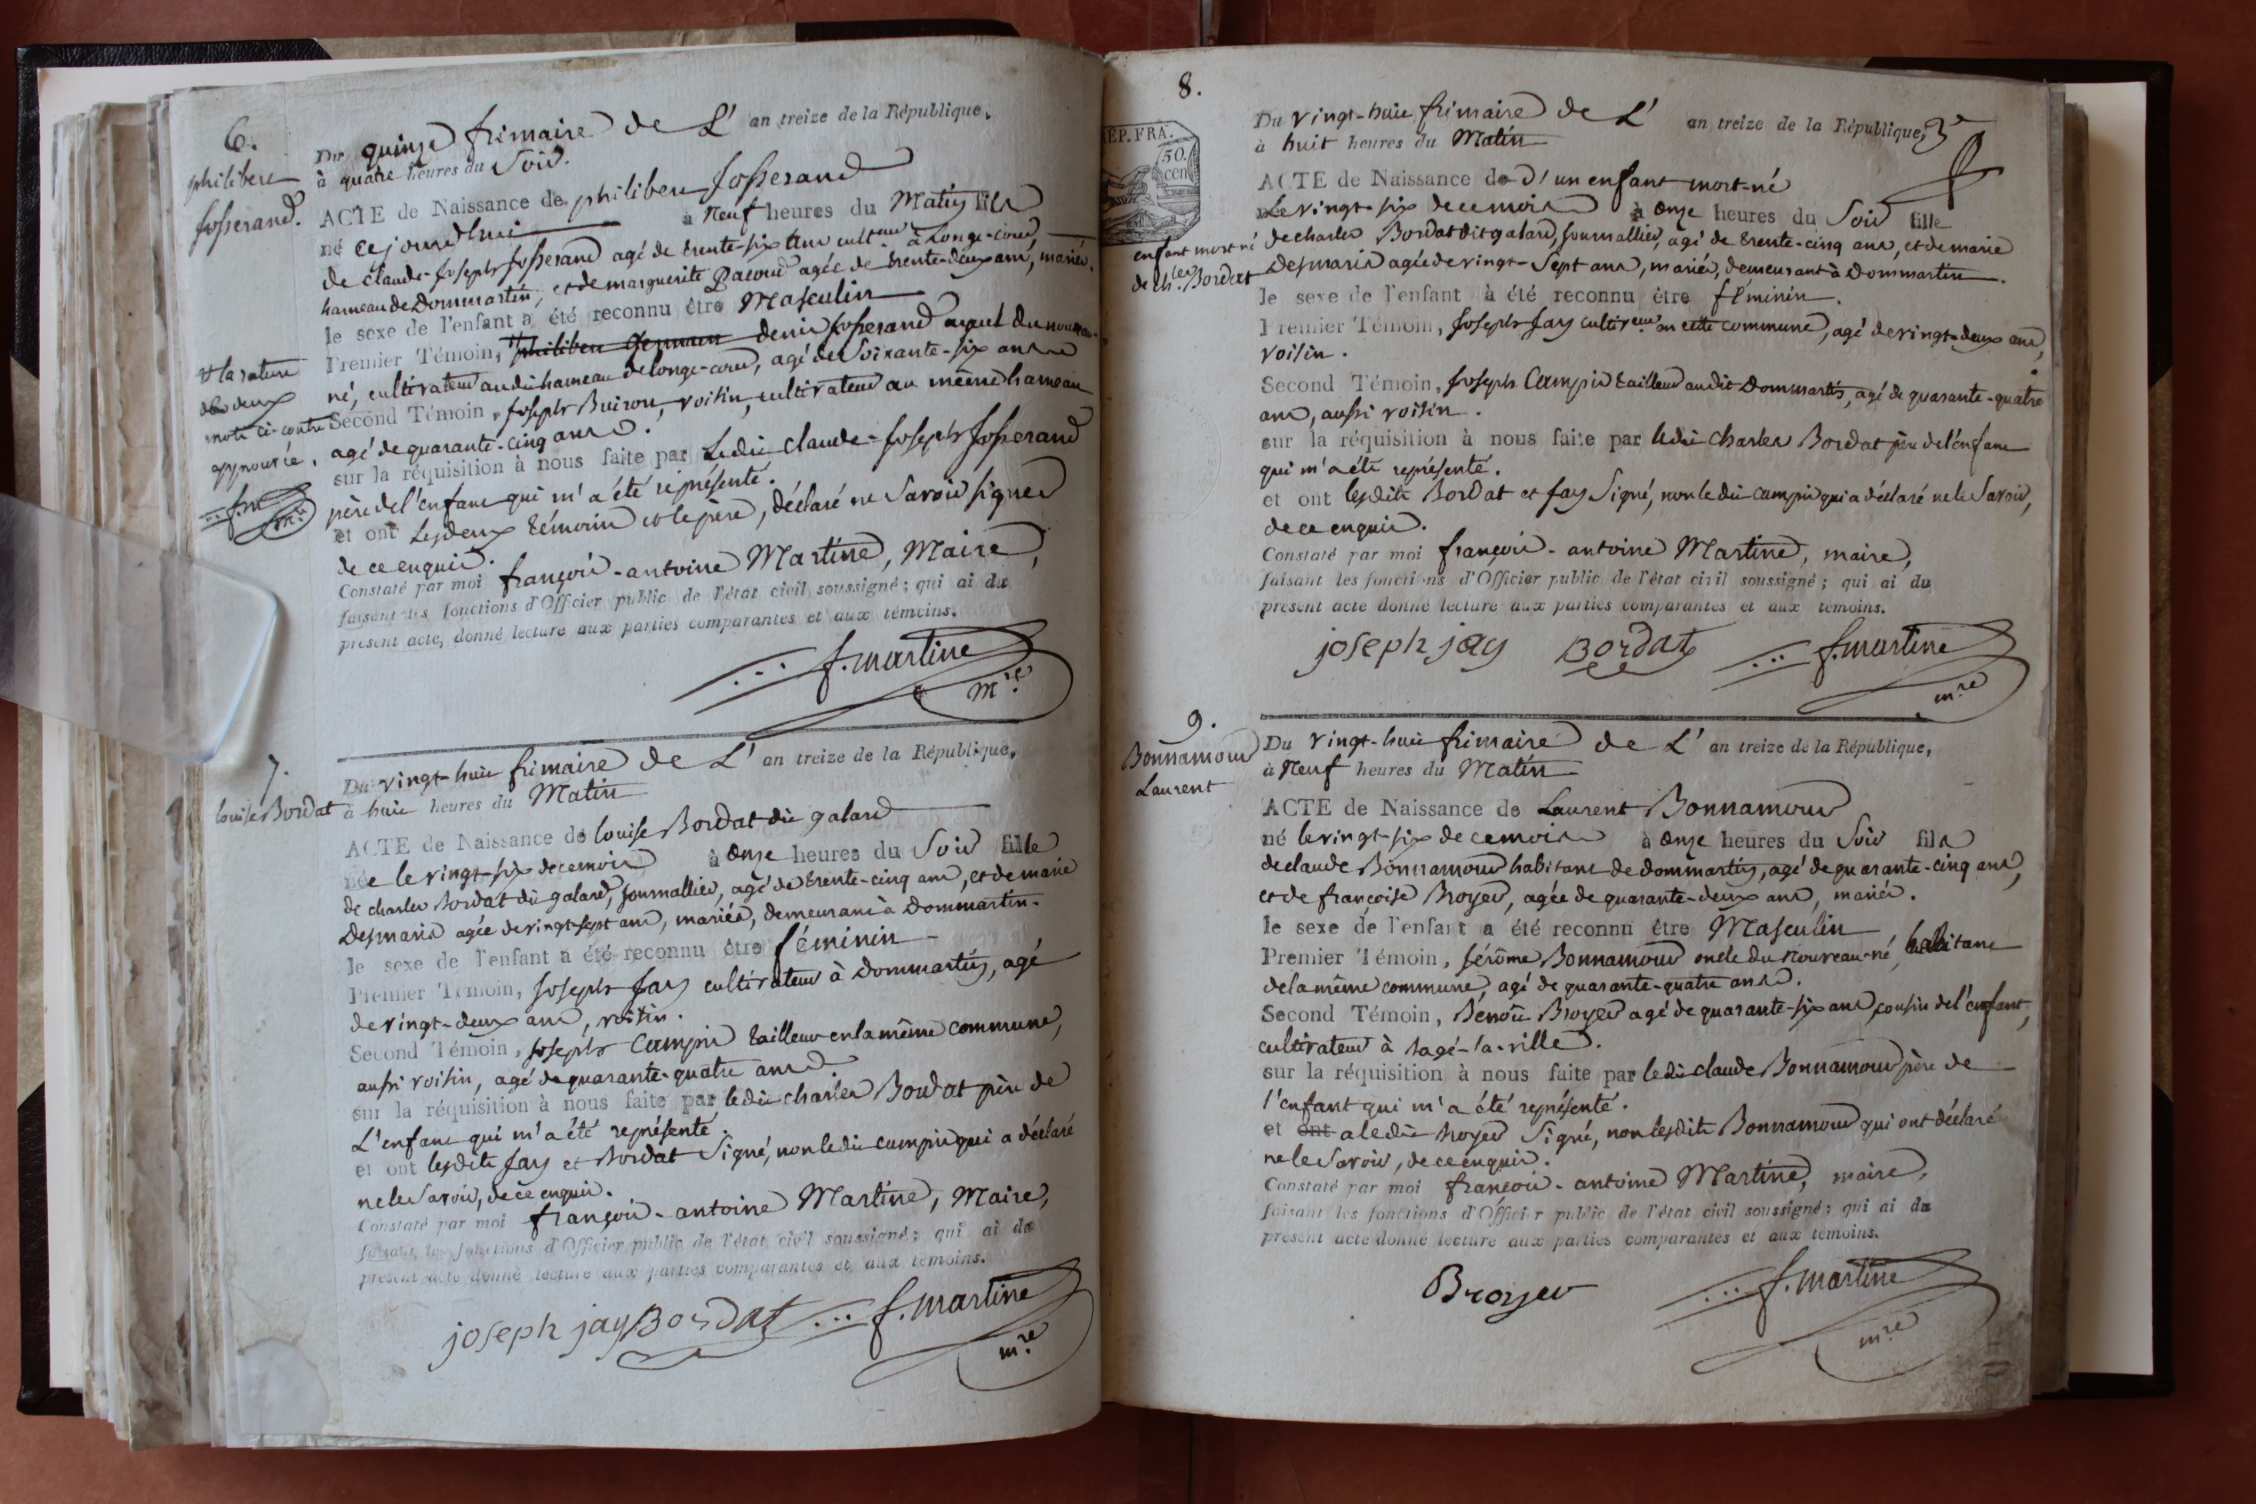 6.
philibert
Josserand.
Du quinze frimaire de L' an treize de la République,
à quatre heures du Soir.
ACTE de Naissance de philibert Josserand
né cejourd'hui à Neuf heures du Matin fils
de claude-Joseph Josserand agé de trente-six ans cult.eur à Longe-cour,
hameau de Dommartin, et de marguerite Pacoud agée de trente-deux ans, mariés.
le sexe de l'enfant a été reconnu être Masculin
Premier Témoin, denis Josserand ayeul du nouveau-
né, cultivateur audit hameau de longe-cour, agé de Soixante-six ans
Second Témoin, Joseph Buiron, voisin, cultivateur au même hameau
agé de quarante-cinq ans.
sur la réquisition à nous faite par Ledit claude-Joseph Josserand
père de l'enfant qui m'a été représenté.
et ont Les deux témoins et le père, déclaré ne Savoir signer
de ce enquis.
Constaté par moi françois-antoine Martine, Maire,
faisant les fonctions d'Officier public de l'état civil soussigné; qui ai du
présent acte, donné lecture aux parties comparantes et aux témoins.
la rature
des deux
mots ci-contre
approuvée.
f.m
m.re
f. martine
m.re
7.
louise Bordat
Du vingt-huit frimaire de L' an treize de la République,
à huit heures du Matin
ACTE de Naissance de louise Bordat dit galard
née le vingt-six de ce mois à onze heures du Soir fille
de charles Bordat dit galard, journallier, agé de trente-cinq ans, et de marie
Desmaris agée de vingt-sept ans, mariés, demeurant à Dommartin.
le sexe de l'enfant a été reconnu être féminin
Premier Témoin, Joseph Jay cultivateur à Dommartin, agé
de vingt-deux ans, voisin.
Second Témoin, Joseph Campin tailleur en la même commune,
aussi voisin, agé de quarante-quatre ans.
sur la réquisition à nous faite par ledit charles Bordat père de
L'enfant qui m'a été représenté.
et ont lesdits Jay et Bordat Signé, non ledit campin qui a déclaré
ne le Savoir, de ce enquis.
Constaté par moi françois-antoine Martine, Maire,
faisant les fonctions d'Officier public de l'état civil soussigné; qui ai du
présent acte donné lecture aux parties comparantes et aux témoins.
joseph jay Bordat f. martine
m.re
8.
RÉP. FRA.
50.
cen
enfant mort né
de ch.les Bordat
Du vingt-huit frimaire de L' an treize de la République, 3e
à huit heures du Matin
ACTE de Naissance de d'un enfant mort-né
Le vingt-six de ce mois à onze heures du Soir fille
de charles Bordat dit galard, journallier, agé de trente-cinq ans, et de marie
Desmaris agée de vingt-sept ans, mariés, demeurant à Dommartin.
le sexe de l'enfant à été reconnu être féminin.
Premier Témoin, Joseph Jay cultivateur en cette commune, agé de vingt-deux ans,
voisin.
Second Témoin, Joseph Campin tailleur audit Dommartin, agé de quarante-quatre
ans, aussi voisin.
sur la réquisition à nous faite par ledit charles Bordat père de l'enfant
qui m'a été représenté.
et ont lesdits Bordat et Jay Signé, non ledit campin qui a déclaré ne le Savoir,
de ce enquis.
Constaté par moi françois-antoine Martine, maire,
faisant les fonctions d'Officier public de l'état civil soussigné; qui ai du
présent acte donné lecture aux parties comparantes et aux témoins.
joseph jay Bordat f. martine
m.re
9.
Bonnamour
Laurent
Du vingt-huit frimaire de L' an treize de la République,
à Neuf heures du Matin
ACTE de Naissance de Laurent Bonnamour
né le vingt-six de ce mois à onze heures du Soir fils
de claude Bonnamour habitant de dommartin, agé de quarante-cinq ans,
et de françoise Broyer, agée de quarante-deux ans, mariés.
le sexe de l'enfant a été reconnu être Masculin
Premier Témoin, Jérôme Bonnamour oncle du nouveau-né, habitant
de la même commune, agé de quarante-quatre ans.
Second Témoin, Bénoît Broyer agé de quarante-six ans, cousin de l'enfant,
cultivateur à Sagé-la-ville.
sur la réquisition à nous faite par ledit claude Bonnamour père de
l'enfant qui m'a été représenté.
et ont a ledit Broyer Signé, non lesdits Bonnamour qui ont déclaré
ne le Savoir, de ce enquis.
Constaté par moi françois-antoine Martine, maire,
faisant les fonctions d'Officier public de l'état civil soussigné; qui ai du
présent acte donné lecture aux parties comparantes et aux témoins.
Broyer f. martine
m.re